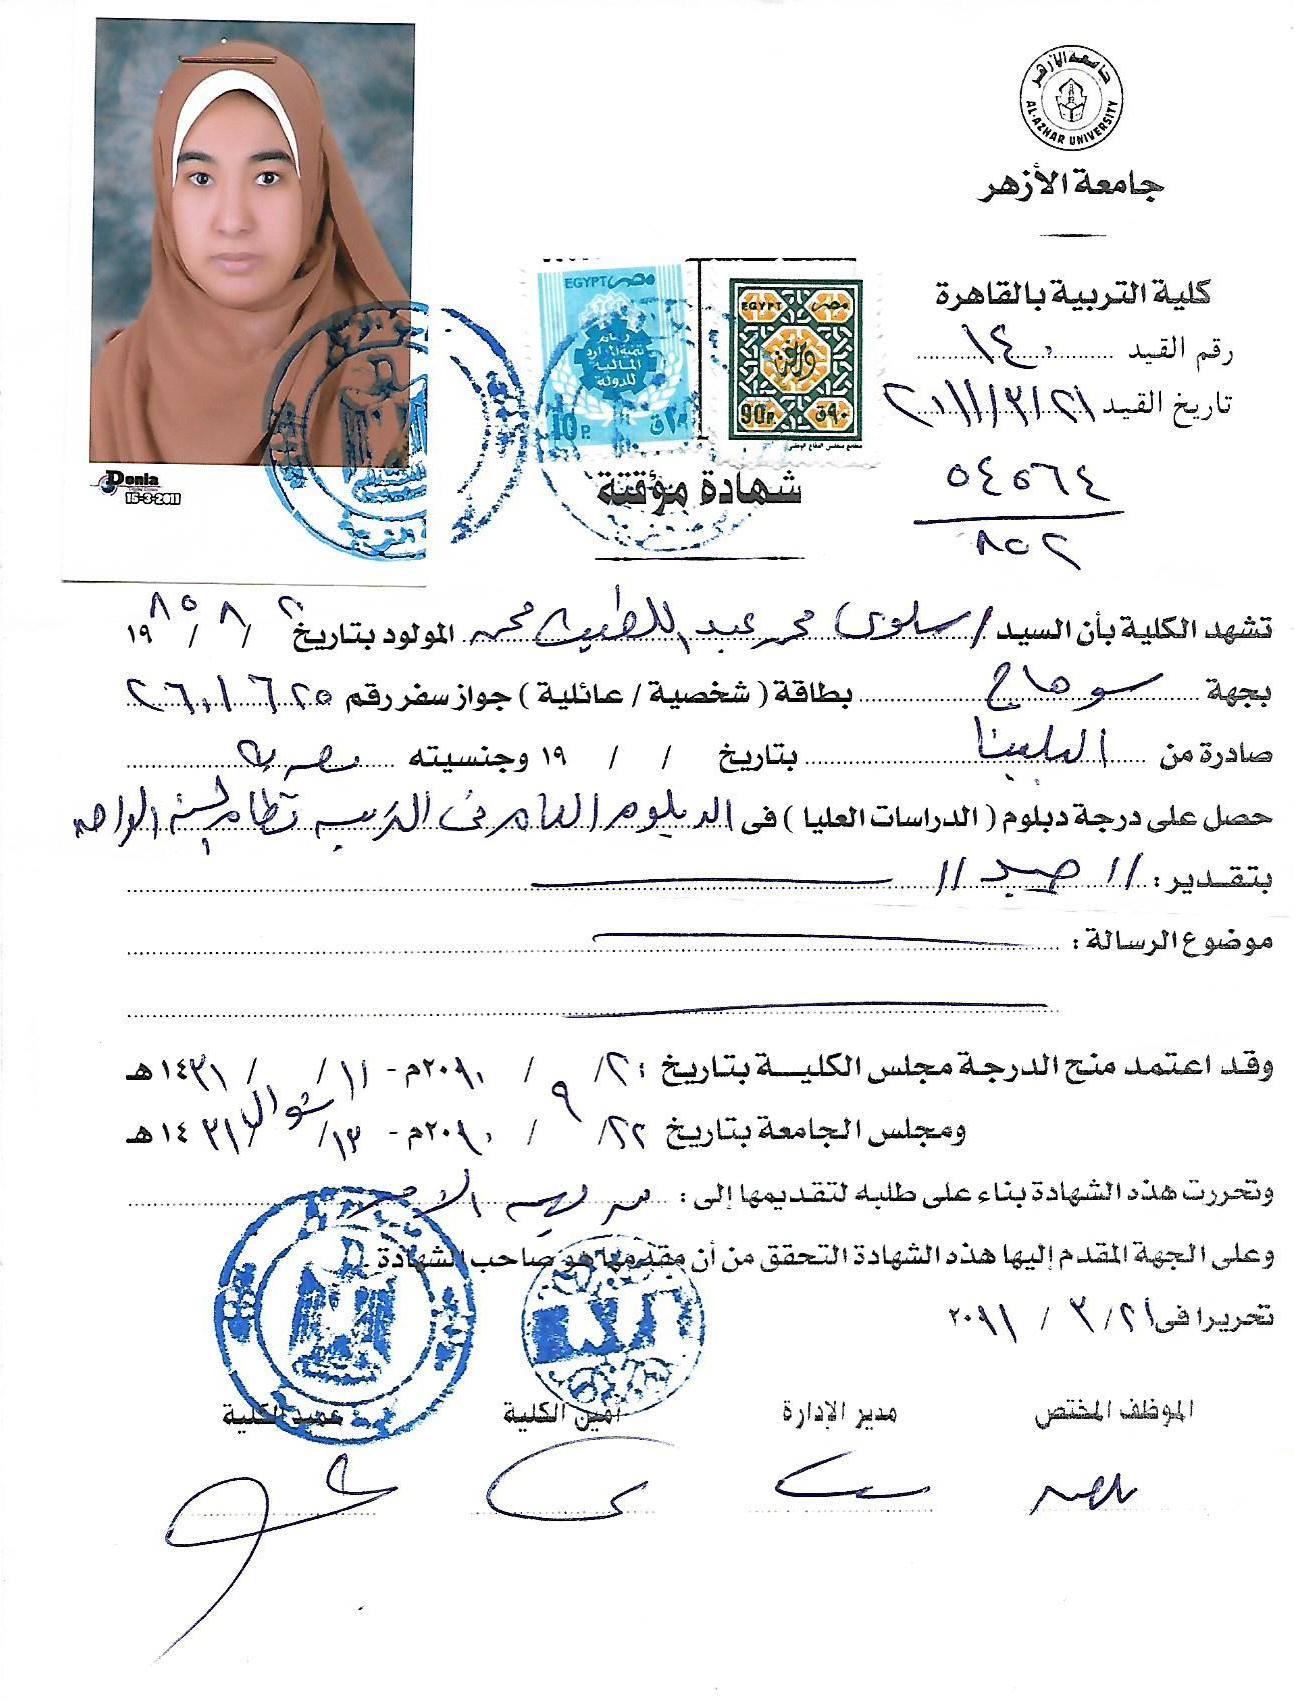 جامعة الأزهر
AL-AZHAR UNIVERSITY
جامعة الأزهر
كلية التربية بالقاهرة
رقم القيد ١٤٠
تاريخ القيد ٢٠١١/٣/٢١
٥٤٥٦٤
٨٥٢
EGYPT مصر
رسم
تنمية الموارد
المالية
للدولة
10 P.
EGYPT مصر
90P. ٩٠ق
Donia
16-3-2011
شهادة مؤقتة
تشهد الكلية بأن السيد / سلوى محمد عبد اللطيف محمد المولود بتاريخ ٢ / ٨ / ١٩٨٥
بجهة سوهاج بطاقة ( شخصية / عائلية ) جواز سفر رقم ٢٦٠١٠٦٢٥
صادرة من البلينا بتاريخ / / ١٩ وجنسيته مصرية
حصل على درجة دبلوم ( الدراسات العليا ) فى الدبلوم العام فى التربية نظام السنة الواحدة
بتقدير : // جيد //
موضوع الرسالة :
وقد اعتمد منح الدرجة مجلس الكلية بتاريخ ٢٠ / ٩ / ٢٠١٠م - ١١ / شوال / ١٤٣١ هـ
ومجلس الجامعة بتاريخ ٢٢ / / ٢٠١٠م - ١٣ / / ١٤٣١ هـ
وتحررت هذه الشهادة بناء على طلبه لتقديمها إلى :
وعلى الجهة المقدم إليها هذه الشهادة التحقق من أن مقدمها هو صاحب الشهادة .
تحريرا فى ٢١ / ٣ / ٢٠١١
الموظف المختص مدير الإدارة أمين الكلية عميد الكلية